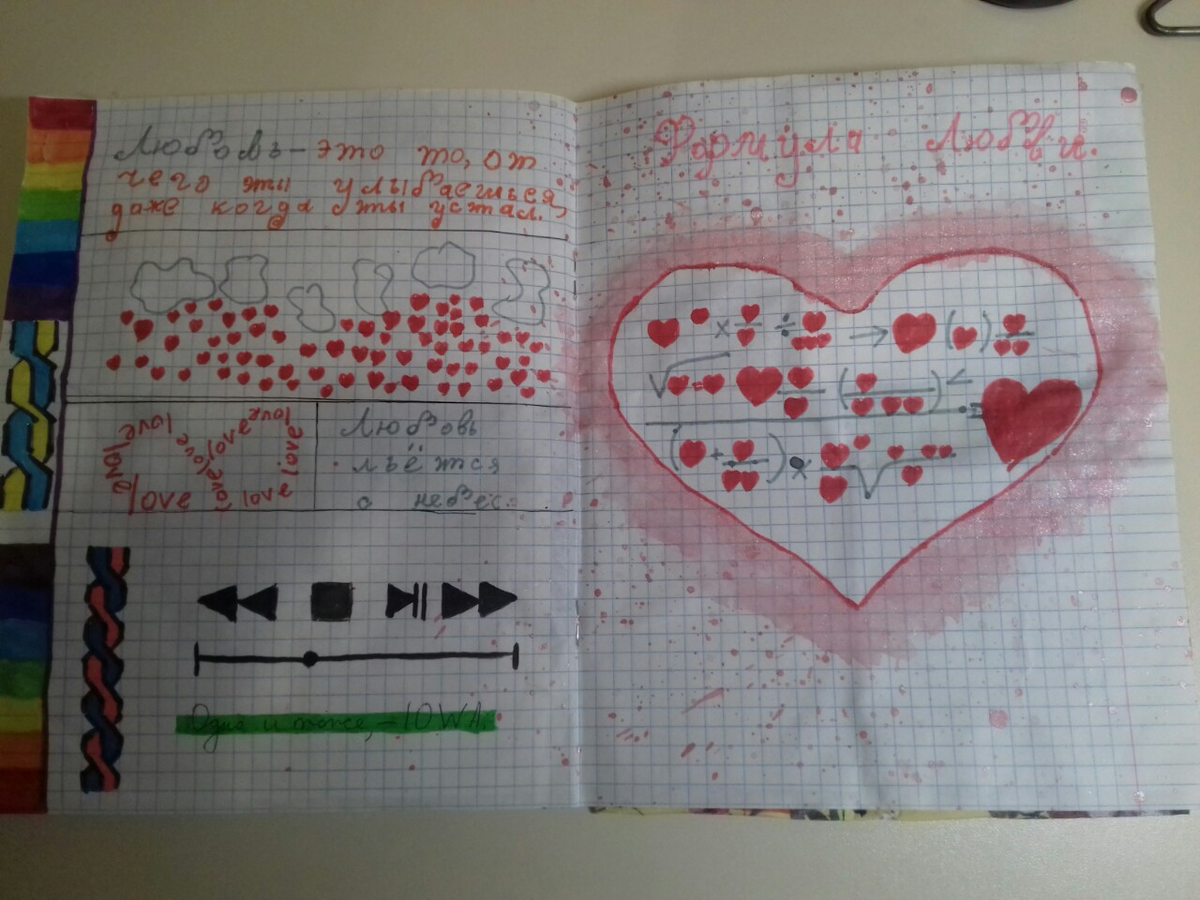 Любовь – это то, от
чего ты улыбаешься,
даже когда ты устал.
love love love love love love love love love
Любовь
льётся
с небес.
Одно и тоже, – IOWA
Формула Любви.